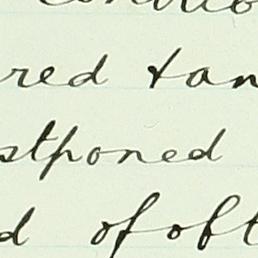 red + an
stponed
d of obt